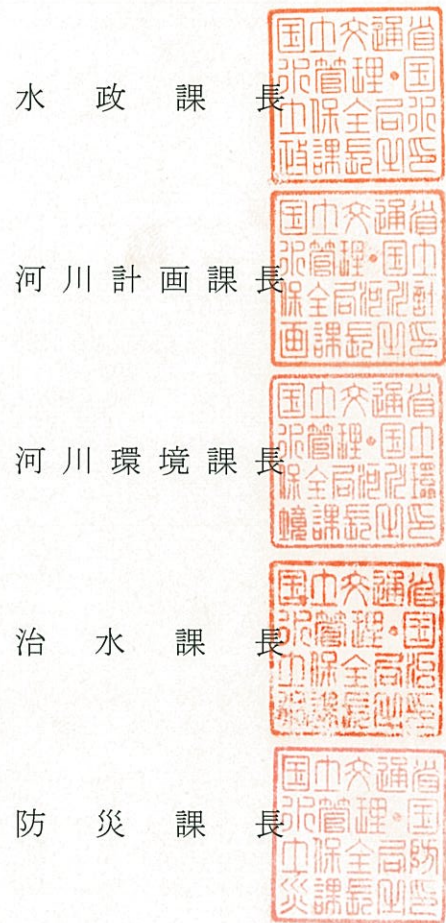 水政課長
国土交通省
水管理・国
土保全局水
政課長之印
河川計画課長
国土交通省
水管理・国土
保全局河川計
画課長之印
河川環境課長
国土交通省
水管理・国土
保全局河川環
境課長之印
治水課長
国土交通省
水管理・国
土保全局治
水課長之印
防災課長
国土交通省
水管理・国
土保全局防
災課長之印